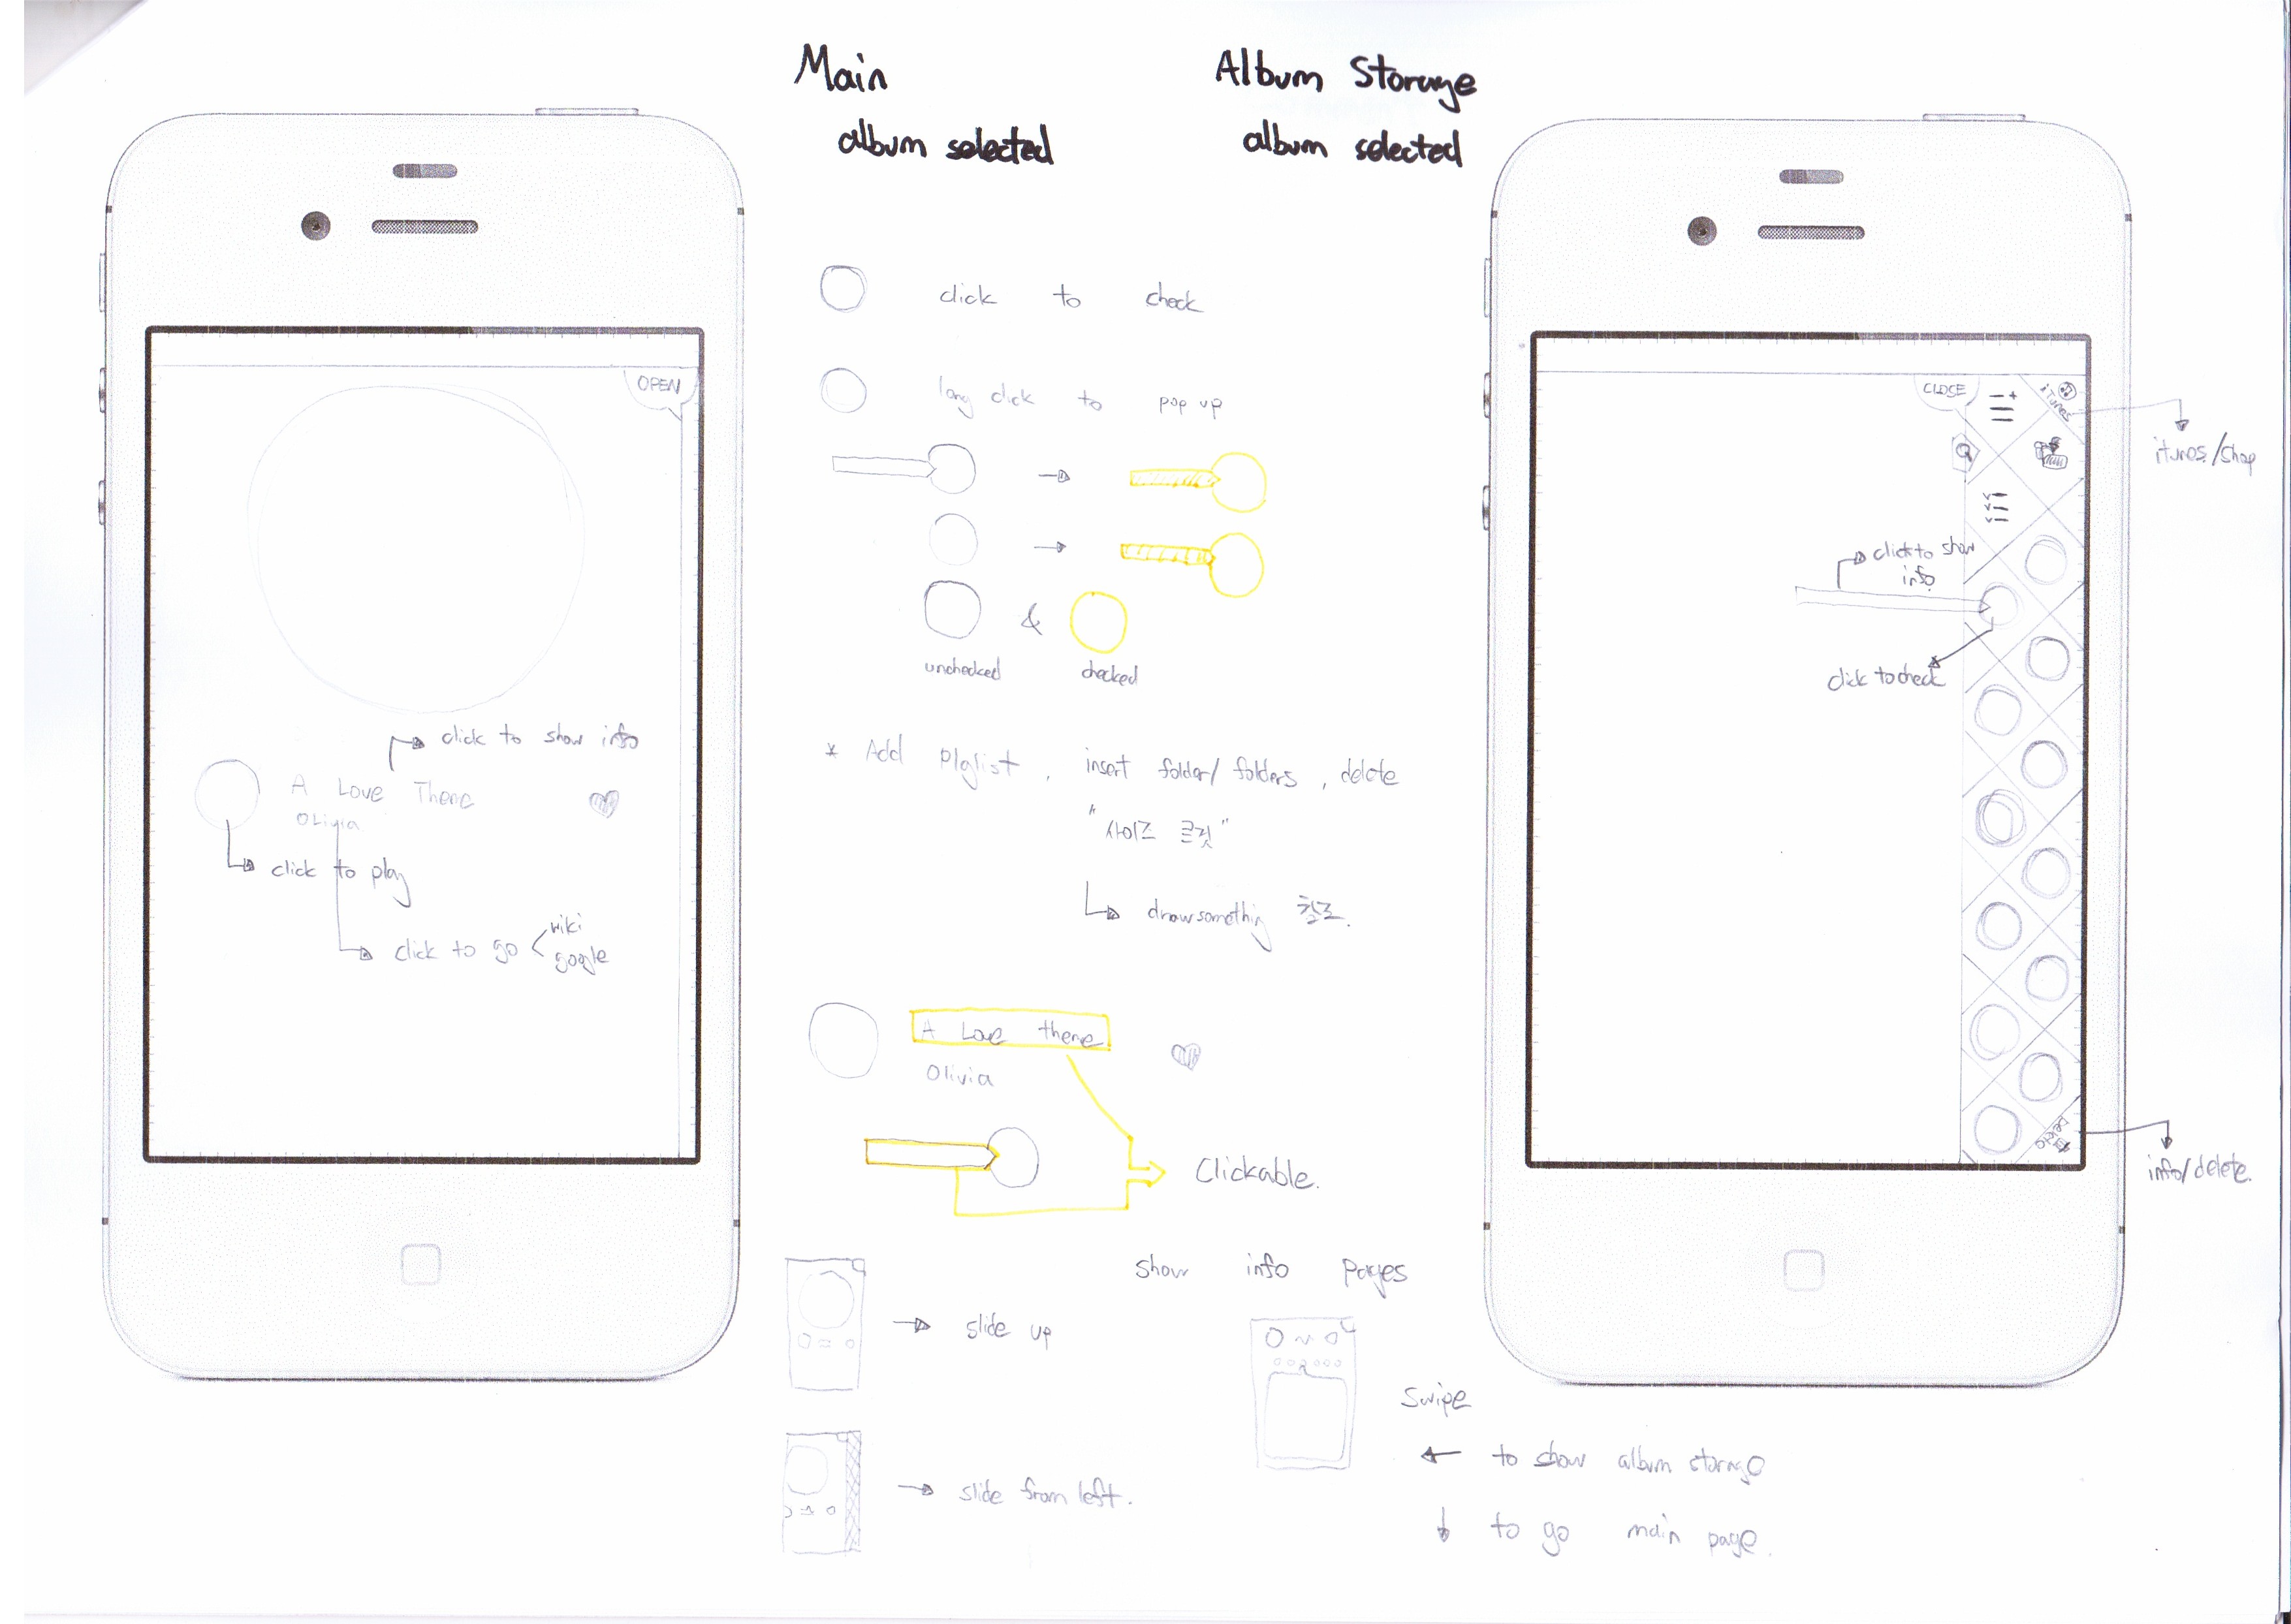 Main
album selected
Album Storage
album selected
OPEN
click to show info
A Love Theme
Olivia
click to play
click to go
wiki
google
click to check
long click to pop up
unchecked & checked
* Add Playlist, insert folder/ folders, delete
"사이즈
drawsomething 참조.
A Love theme
Olivia
Clickable.
show info pages
slide up
slide from left.
Swipe
← to show album storage
↓ to go main page.
CLOSE
iTunes
itunes/shop
click to show
info
click to check
info/delete.